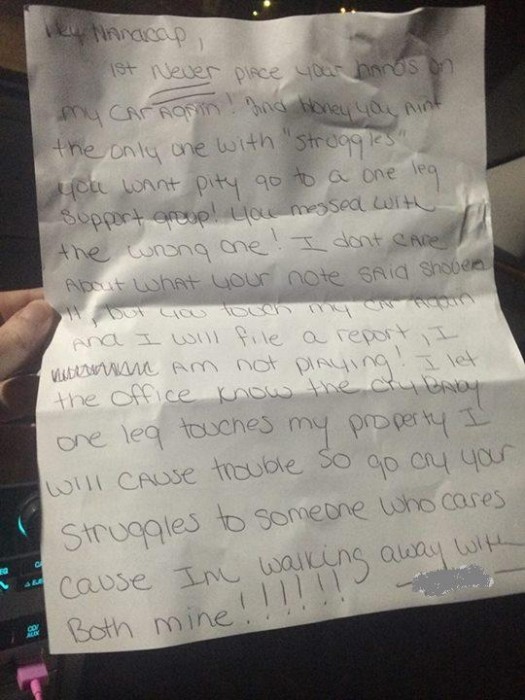 Hey Hanaicap,
1st Never place your hands on
my car Again! 2nd honey you Aint
the only one with "struggles"
you want pity go to a one leg
support group! You messed with
the wrong one! I dont care
About what your note said shove
it, but you touch my car Again
And I will file a report, I
Am not playing! I let
the office know the cry Baby
one leg touches my property I
will cause trouble so go cry your
struggles to someone who cares
cause Im walking away with
Both mine!!!!!!!